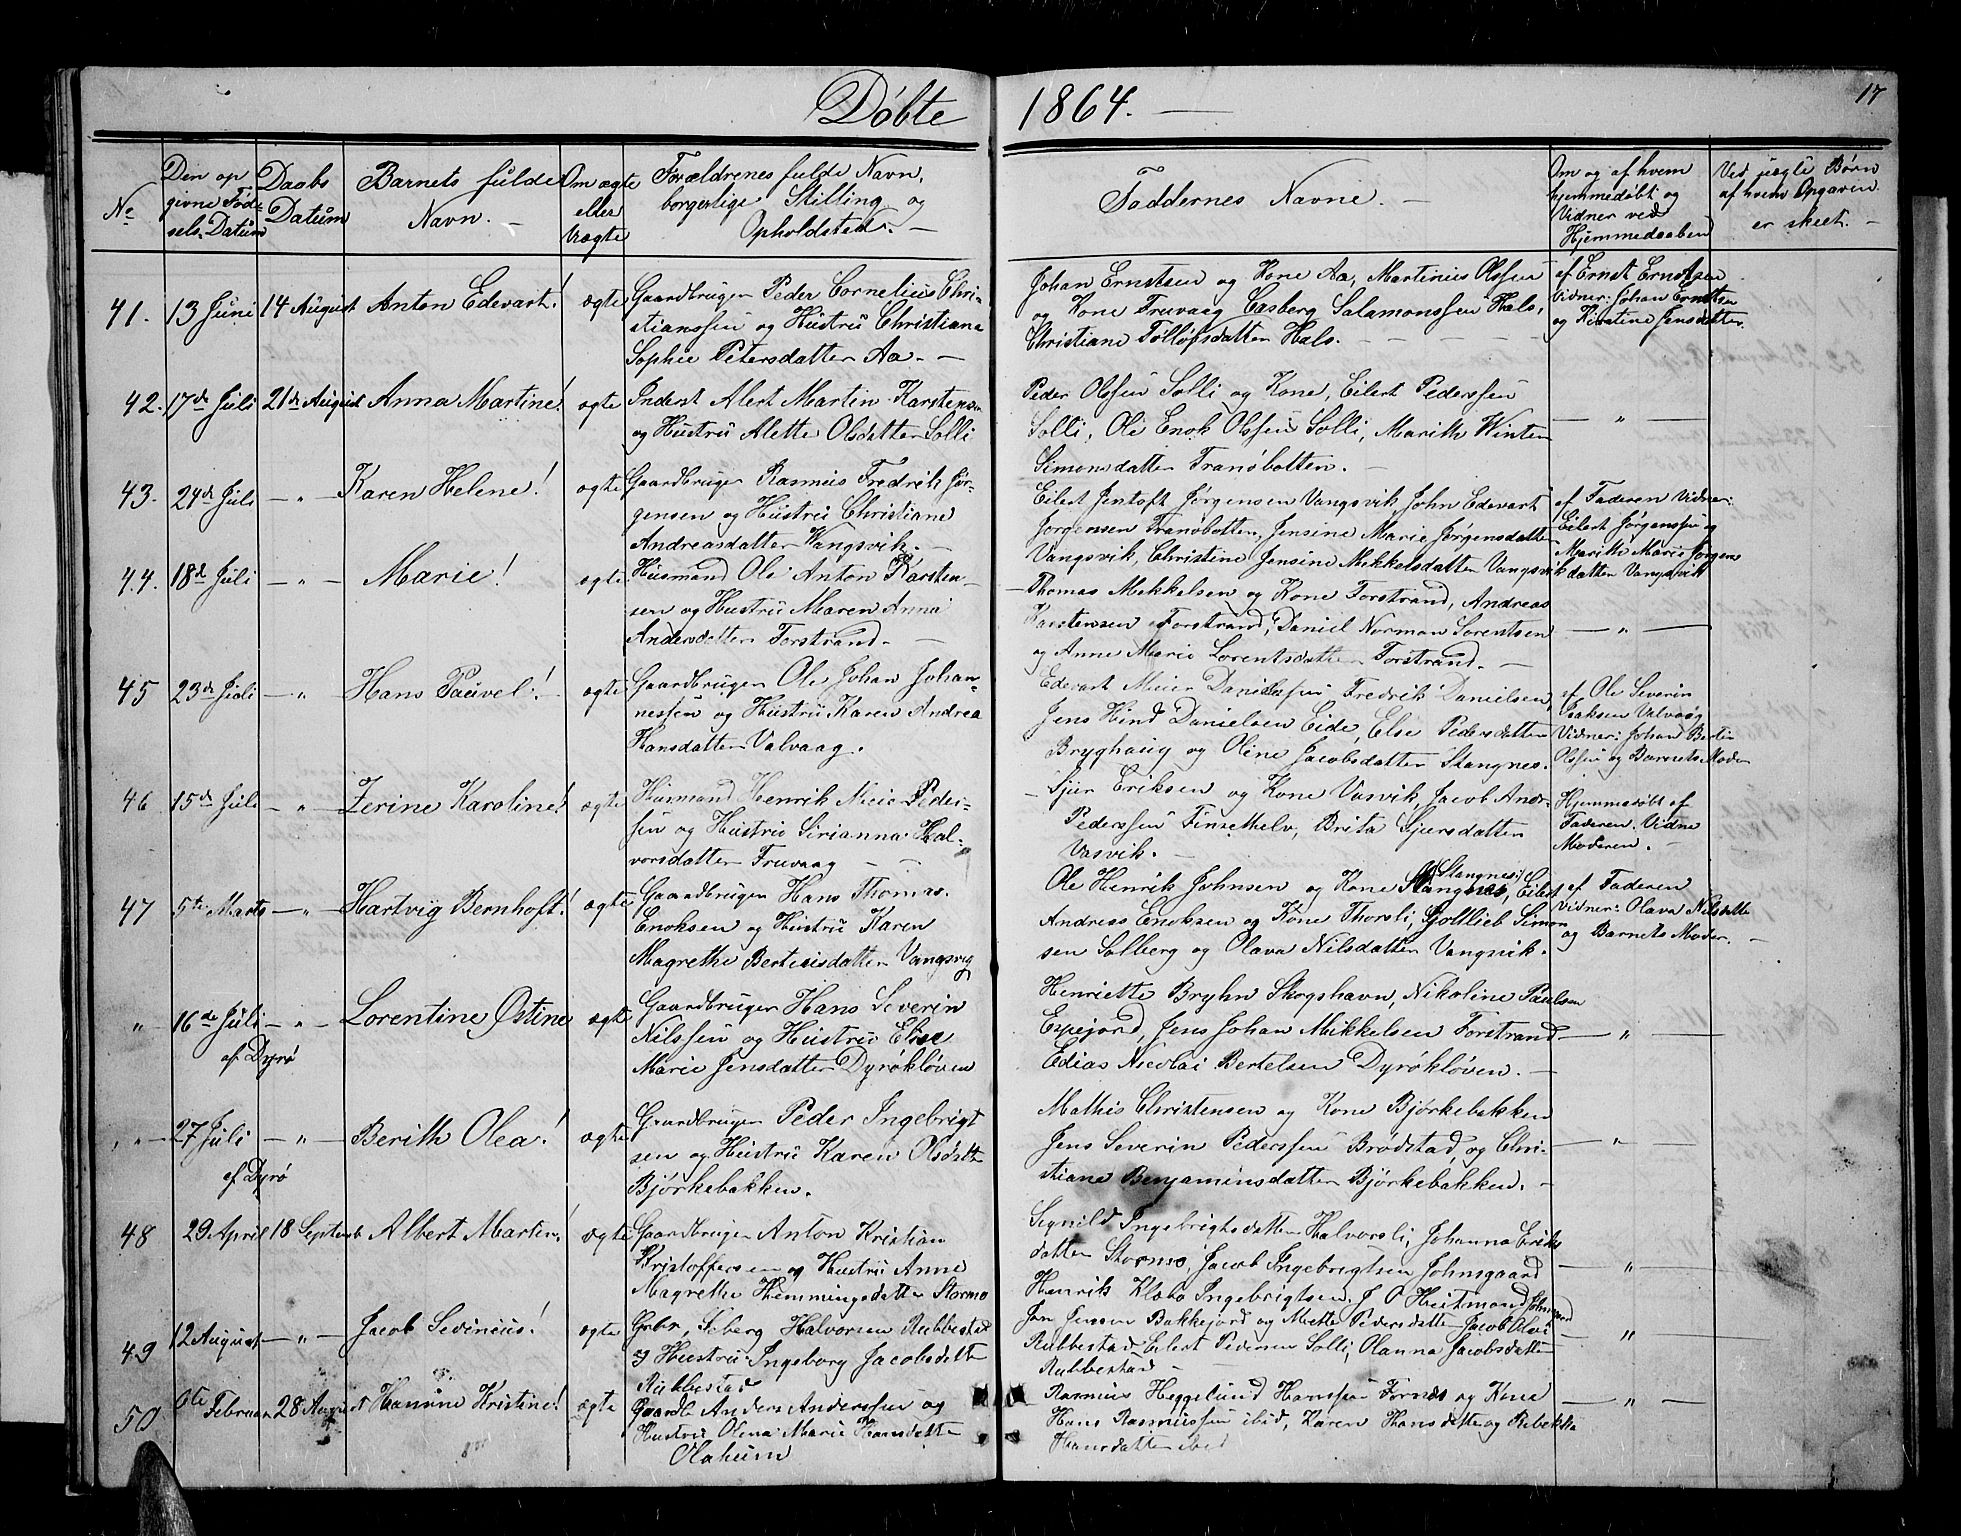 Döbte 1864. —
17
No
Den op givne Fød- sels-Datum
Daabs Datum
Barnets fulde Navn. —
Om ægte eller Uægte
Forældrenes fulde Navn, borgerlige Stilling og Opholdsted. —
Faddernes Navne. —
Om og af hvem hjemmedøbt og Vidner ved Hjemmedaaben
Ved uægte Børn af hvem Opgaven er skeet. —
41. 13 Juni 14 August Anton Edevart! ægte
Gaardbruger Peder Cornelius Chri-
stianssen og Hustru Christiana
Sophie Petersdatter Aa. —
Johan Ernstsen og Kone Aa, Martinus Olssen
og Kone Fruvaag Casberg Salamonssen Hals,
Christiane Tolløfsdatter Hals.
af Ernst Ernstsen
Vidner: Johan Ernstsen
og Kirstine Jensdatter.
42. 17de Juli 21de August Anna Martine! ægte
Inderst Alert Martin Karstensen
og Hustru Alette Olsdatter Solli
Peder Olssen Solli og Kone, Eilert Pederssen
Solli, Ole Enok Olssen Solli, Marith Winter
Simonsdatter Tranøbotten. —
— " —
43. 24de Juli — " — Karen Helene! ægte
Gaardbruger Rasmus Fredrik Jør-
gensen og Hustru Christiane
Andreasdatter Vangsvik. —
Eilert Jentoft Jørgensen Vangsvik, John Edevart
Jørgensen Tranøbotten, Jensine Marie Jørgensdatter
Vangsvik, Christine Jensine Mekkelsdatter Vangsvik
af Faderen Vidner:
Eilert Jørgenssen og
Marith Marie Jørgens
datter Vangsvik
44. 18de Juli — " — Marie! ægte
Husmand Ole Anton Karsten-
sen og Hustru Maren Anna
Andersdatter Forstrand. —
Thomas Mekkelsen og Kone Forstrand, Andreas
Karstensen Forstrand, Daniel Norman Lorentsen
og Anne Marie Lorentsdatter Forstrand. —
— " —
45 23de Juli — " Hans Pauvel! ægte
Gaardbruger Ole Johan Johan-
nessen og Hustru Karen Andrea
Hansdatter Valvaag.
Edevart Meier Danielssen Fredrik Danielsen,
Jens Hind Danielsen Eide, Else Pedersdatter
Bryghaug og Oline Jacobsdatter Stangnes.
af Ole Severin
Isaksen Valvaag
Vidner: Johan Bertin
Olssen og Barnets Moder
46 15de Juli — " — Zerine Karoline! ægte
Husmand Henrik Meier Peder-
sen og Hustru Sirianna Hal-
vorsdatter Fruvaag —
Sjur Eriksen og Kone Vasvik, Jacob Andr.
Pederssen Finsethelv, Brita Sjursdatter
Vasvik. —
Hjemmedøbt af
Faderen. Vidne
Moderen. —
47 5te Marts — " — Hartvig Bernhoft! ægte
Gaardbruger Hans Thomas
Enoksen og Hustru Karen
Magrethe Berteusdatter Vangsvig
Ole Henrik Johnsen og Kone Stangnes, Eilert
Andreas Enoksen og Kone Thorsli, Gottlieb Simon
sen Solberg og Olava Nilsdatter Vangvik.
af Faderen
Vidner: Olava Nilsdatter
og Barnets Moder. —
" — 16de Juli — " — Lorentine Østine ægte
af Dyrø
Gaardbruger Hans Severin
Nilssen og Hustru Elise
Marie Jensdatter Dyrøkløven
Henriette Bryhn Skogshavn, Nikoline Paulsen
Espejord, Jens Johan Mikkelsen Forstrand
Edias Nicolai Bertelsen Dyrøkløven. —
— " —
" — 27 Juli — " — Berith Olea! ægte
af Dyrø
Gaardbruger Peder Ingebrigt
sen og Hustru Karen Olsdatter
Bjørkebakken.
Mathis Christensen og Kone Bjørkebakken
Jens Severin Pederssen Brødstad, og Chri-
stiane Benjaminsdatter Bjørkebakken. —
— " —
48 29 April 18 Septemb Albert Martin! ægte
Gaardbruger Anton Kristian
Kristoffersen og Hustru Anne
Magrethe Hemmingsdatter Stormo
Segnild Ingebrigtsdatter Halvorsli, Johanna Eriks
datter Stormo, Jacob Ingebrigtsen Johnsgaard
Henrik Klæbo Ingebrigtsen, J O Heitmand Johnsgaard
— " —
49 12 August — " — Jacob Sevineus! ægte
Grbr, Seberg Halvorsen Rubbestad
og Hustru Ingeborg Jacobsdatter
Rubbestad
Jon Jensen Bakkejord og Mette Pedersdatter Jacob Olai
Rubbestad Eilert Pedersen Solli, Olanna Jacobsdatter
Rubbestad —
— " —
50 6te Februar 28 August Hansine Kristine! ægte
Gaardb Anders Anderssen og
Hustru Olena Marie Hansdatter
Olaheim
Rasmus Heggelund Hanssen Fornæs og Kone
Hans Rasmussen ibid, Karen Hansdatter og Rebekka
Hansdatter ibid
— " —